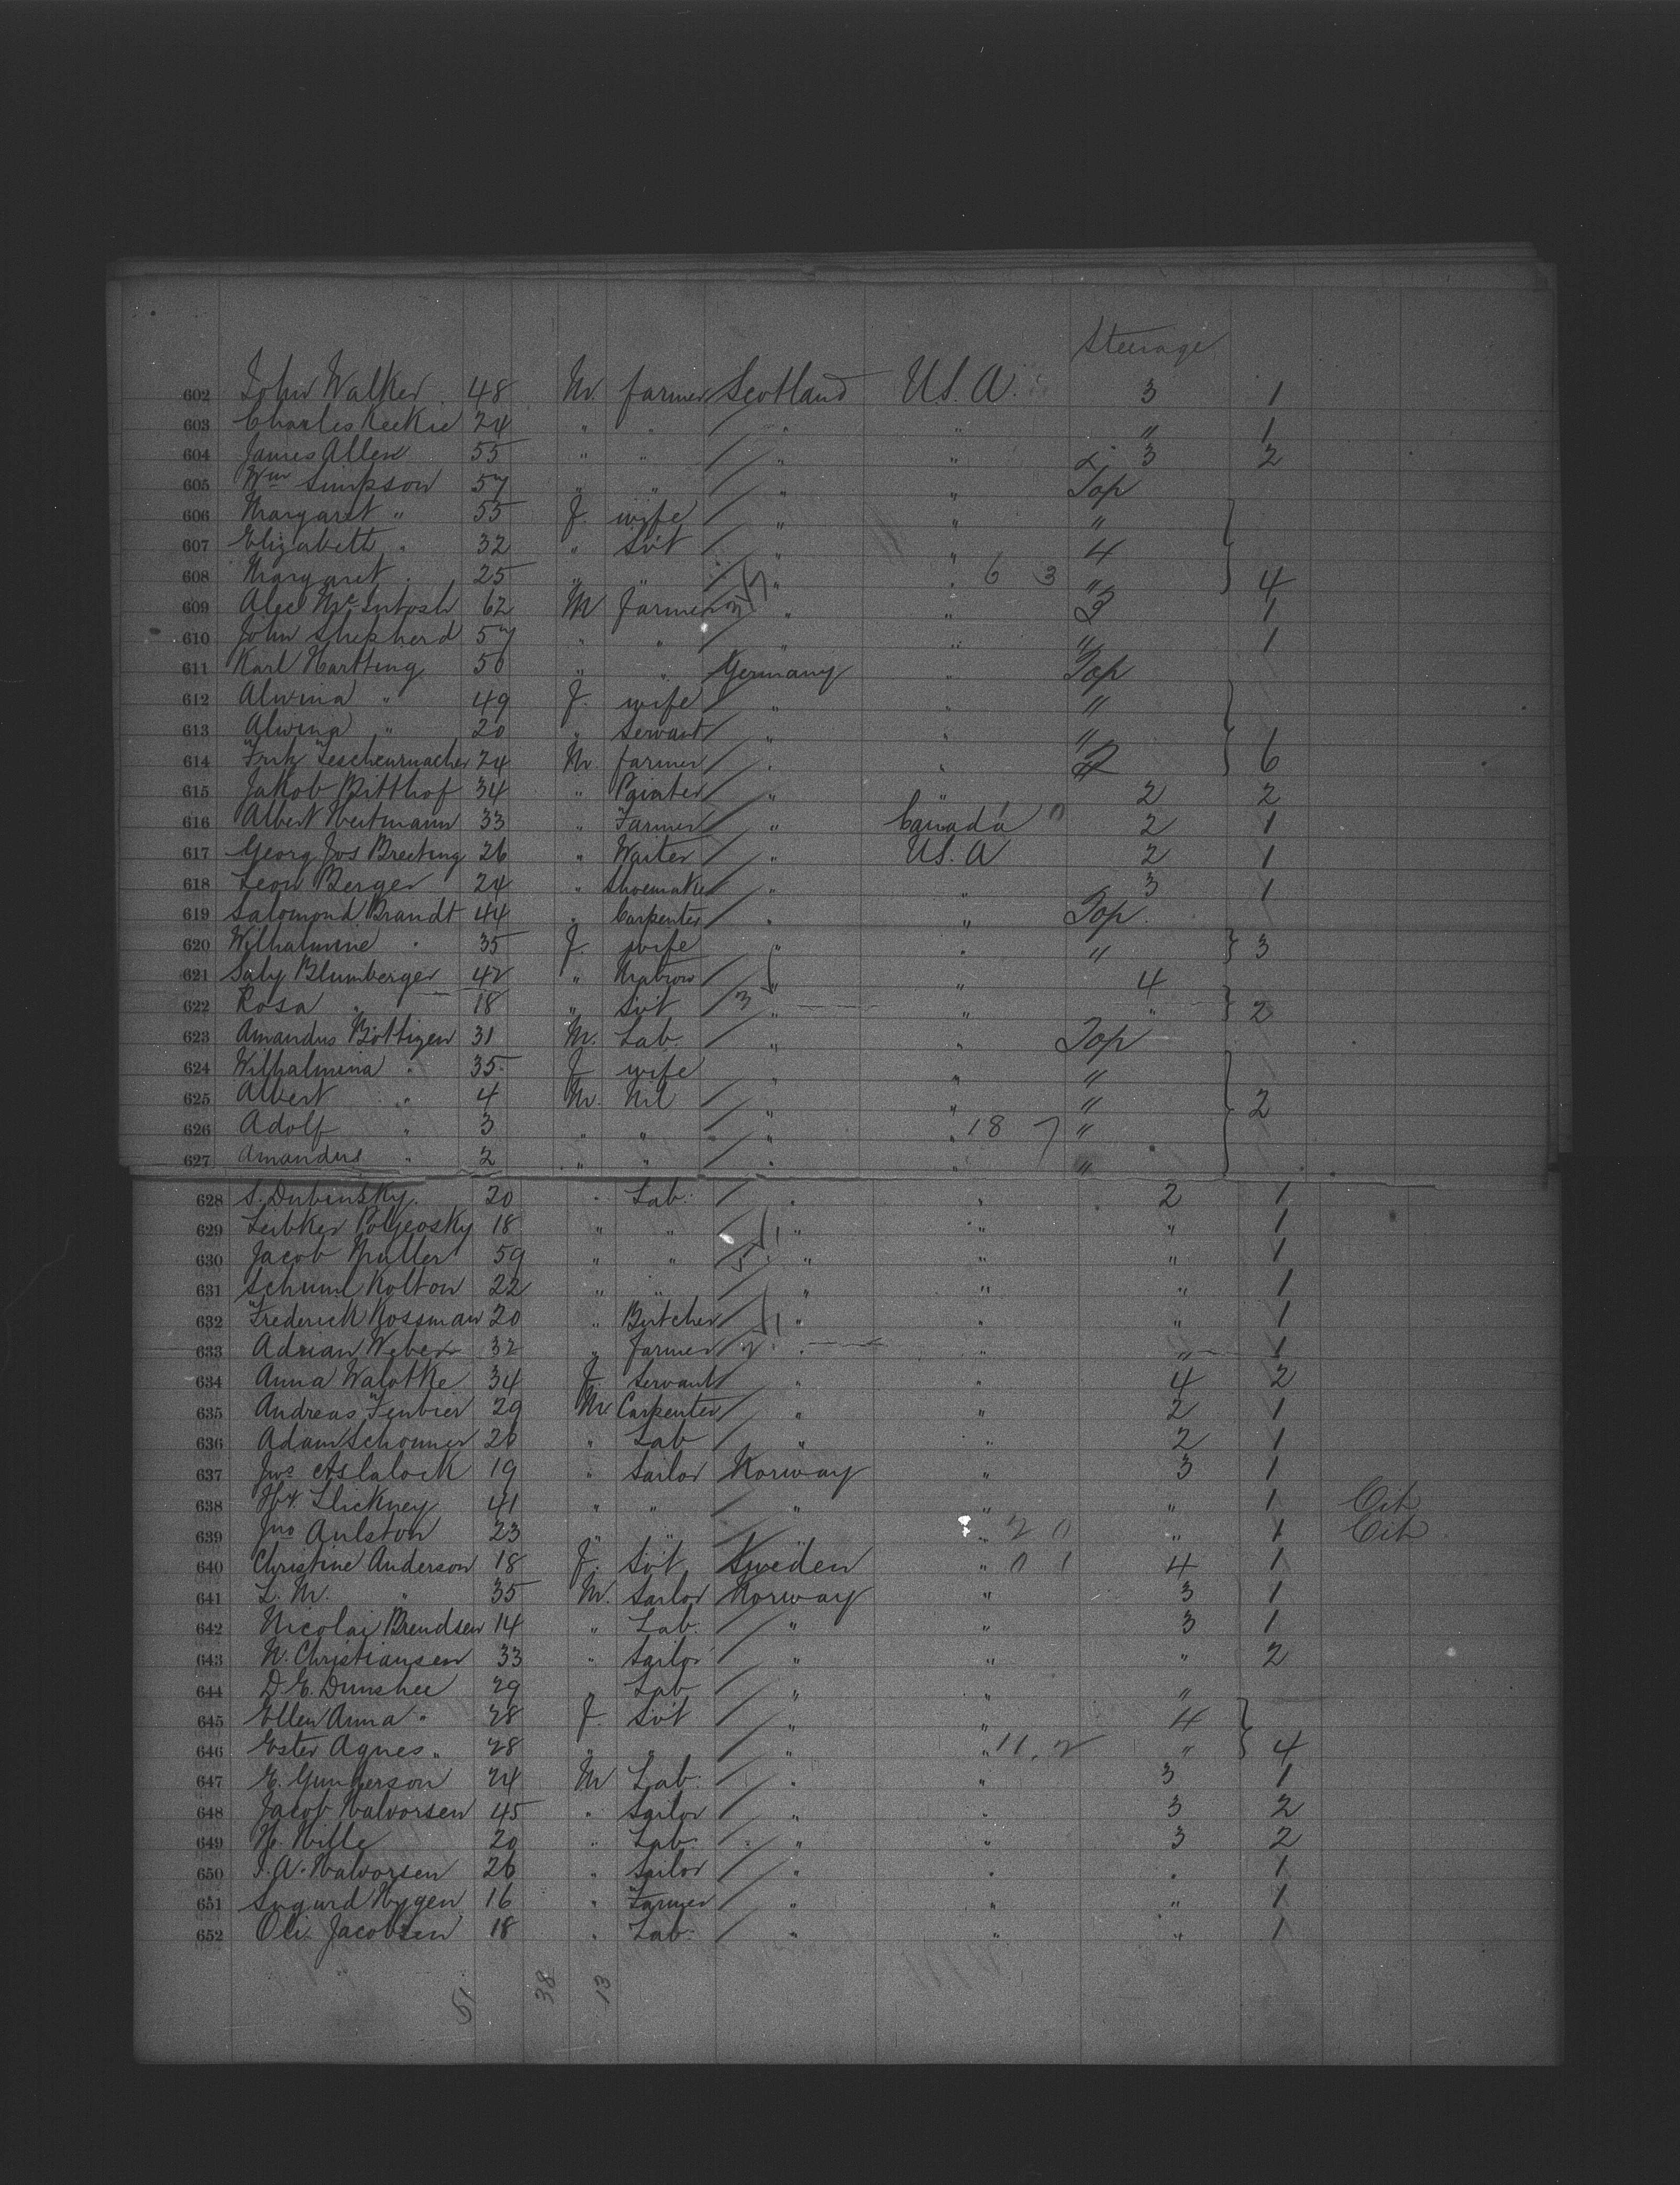 Steerage
602 John Walker 48 M. farmer Scotland U.S.A. 3 1
603 Charles Keekie 24 " " " " " 1
604 James Allen 55 " " " " 3 2
605 Wm Simpson 57 " " " " Top
606 Margaret " 55 F. wife " " "
607 Elizabeth " 32 " Svt " " 4
608 Margaret " 25 " " " " 6 3 " 4
609 Alec McIntosh 62 M farmer " " 3 1
610 John Shepherd 57 " " " " " 1
611 Karl Hartting 50 " " Germany " Top
612 Alwina " 49 F. wife " " "
613 Alwina " 20 " Servant " " "
614 Fritz Teschenmacher 24 M. farmer " " 2 6
615 Jakob Bitthof 34 " Painter " " 2 2
616 Albert Heitmann 33 " Farmer " Canada 2 1
617 Georg Jos Breeting 26 " Waiter " U.S.A 2 1
618 Leon Berger 24 " Shoemaker " " 3 1
619 Salomond Brandt 44 " Carpenter " " Top
620 Wilhalmine " 35 F. wife " " " 3
621 Saly Blumberger 42 " Matron " " 4
622 Rosa " 18 " Svt " " " 2
623 Amandus Böttigen 31 M. Lab. " " Top
624 Wilhalmina " 35 F wife " " "
625 Albert " 4 M. Nil " " " 2
626 Adolf " 3 " " " " 18 7 "
627 Amandus " 2 " " " " "
628 S. Dubinsky. 20 " Lab. " " 2 1
629 Leibker Poljeosky 18 " " " " " 1
630 Jacob Muller 59 " " " " " 1
631 Schuml Kolton 22 " " " " " 1
632 Frederick Rossman 20 " Butcher " " " 1
633 Adrian Weber 32 " farmer " " " 1
634 Anna Walotke 34 F. Servant " " 4 2
635 Andreas Fenbier 29 M. Carpenter " " 2 1
636 Adam Schonner 26 " Lab " " 2 1
637 Jno Aslalock 19 " Sailor Norway " 3 1
638 Hy. Slickney 41 " " " " " 1 Cit
639 Jno Aulston 23 " " " " 2 0 " 1 Cit
640 Christine Anderson 18 F. Svt Sweden " 0 1 4 1
641 L. M. " 35 M. Sailor Norway " 3 1
642 Nicolai Brendsen 14 " Lab. " " 3 1
643 N. Christiansen 33 " Sailor " " " 2
644 D. E. Dunshee 29 " Lab " " "
645 Ellen Anna " 28 F. Svt " " 4
646 Ester Agnes " 28 " " " " 11. 2 " 4
647 E. Gunderson 24 M Lab. " " 3 1
648 Jacob Halvorsen 45 " Sailor " " 3 2
649 H. Hille 20 " Lab. " " 3 2
650 I. A. Halvorsen 26 " Sailor " " " 1
651 Sugurd Hygen 16 " Farmer " " " 1
652 Oli. Jacobsen 18 " Lab. " " " 1
51 38 13